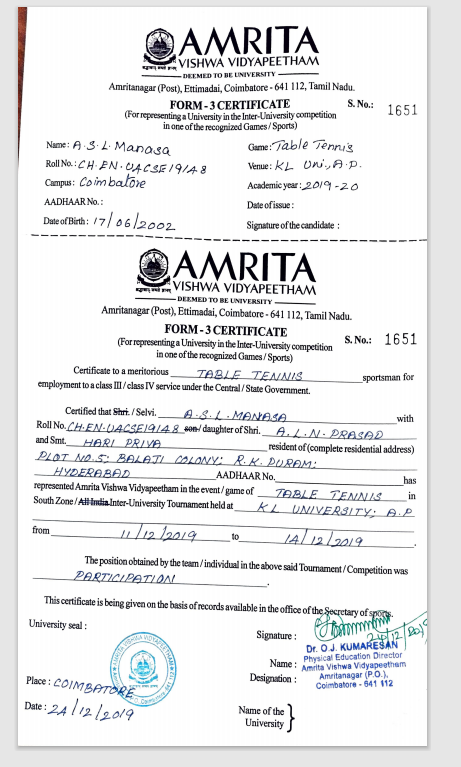 AMRITA
VISHWA VIDYAPEETHAM
DEEMED TO BE UNIVERSITY
Amritanagar (Post), Ettimadai, Coimbatore - 641 112, Tamil Nadu.
FORM - 3 CERTIFICATE S. No.: 1651
(For representing a University in the Inter-University competition
in one of the recognized Games / Sports)
Name: A.S.L. Manasa Game: Table Tennis
Roll No.: CH.EN.UACSE19148 Venue: KL Uni., A.P.
Campus: Coimbatore Academic year: 2019-20
AADHAAR No.: Date of issue :
Date of Birth: 17/06/2002 Signature of the candidate :
AMRITA
VISHWA VIDYAPEETHAM
DEEMED TO BE UNIVERSITY
Amritanagar (Post), Ettimadai, Coimbatore - 641 112, Tamil Nadu.
FORM - 3 CERTIFICATE S. No.: 1651
(For representing a University in the Inter-University competition
in one of the recognized Games / Sports)
Certificate to a meritorious TABLE TENNIS sportsman for
employment to a class III / class IV service under the Central / State Government.
Certified that Shri. / Selvi. A.S.L. MANASA with
Roll No. CH.EN.UACSE19148 son/ daughter of Shri. A.L.N. PRASAD
and Smt. HARI PRIYA resident of (complete residential address)
PLOT NO.5; BALAJI COLONY; R.K. PURAM;
HYDERABAD AADHAAR No. has
represented Amrita Vishwa Vidyapeetham in the event / game of TABLE TENNIS in
South Zone / All India Inter-University Tournament held at KL UNIVERSITY; A.P
from 11/12/2019 to 14/12/2019.
The position obtained by the team / individual in the above said Tournament / Competition was
PARTICIPATION.
This certificate is being given on the basis of records available in the office of the Secretary of sports.
University seal : Signature : 24/12/2019
Dr. O.J. KUMARESAN
Name : Physical Education Director
Amrita Vishwa Vidyapeetham
Designation : Amritanagar (P.O.),
Coimbatore - 641 112
Place : COIMBATORE
Date : 24/12/2019 Name of the
University }